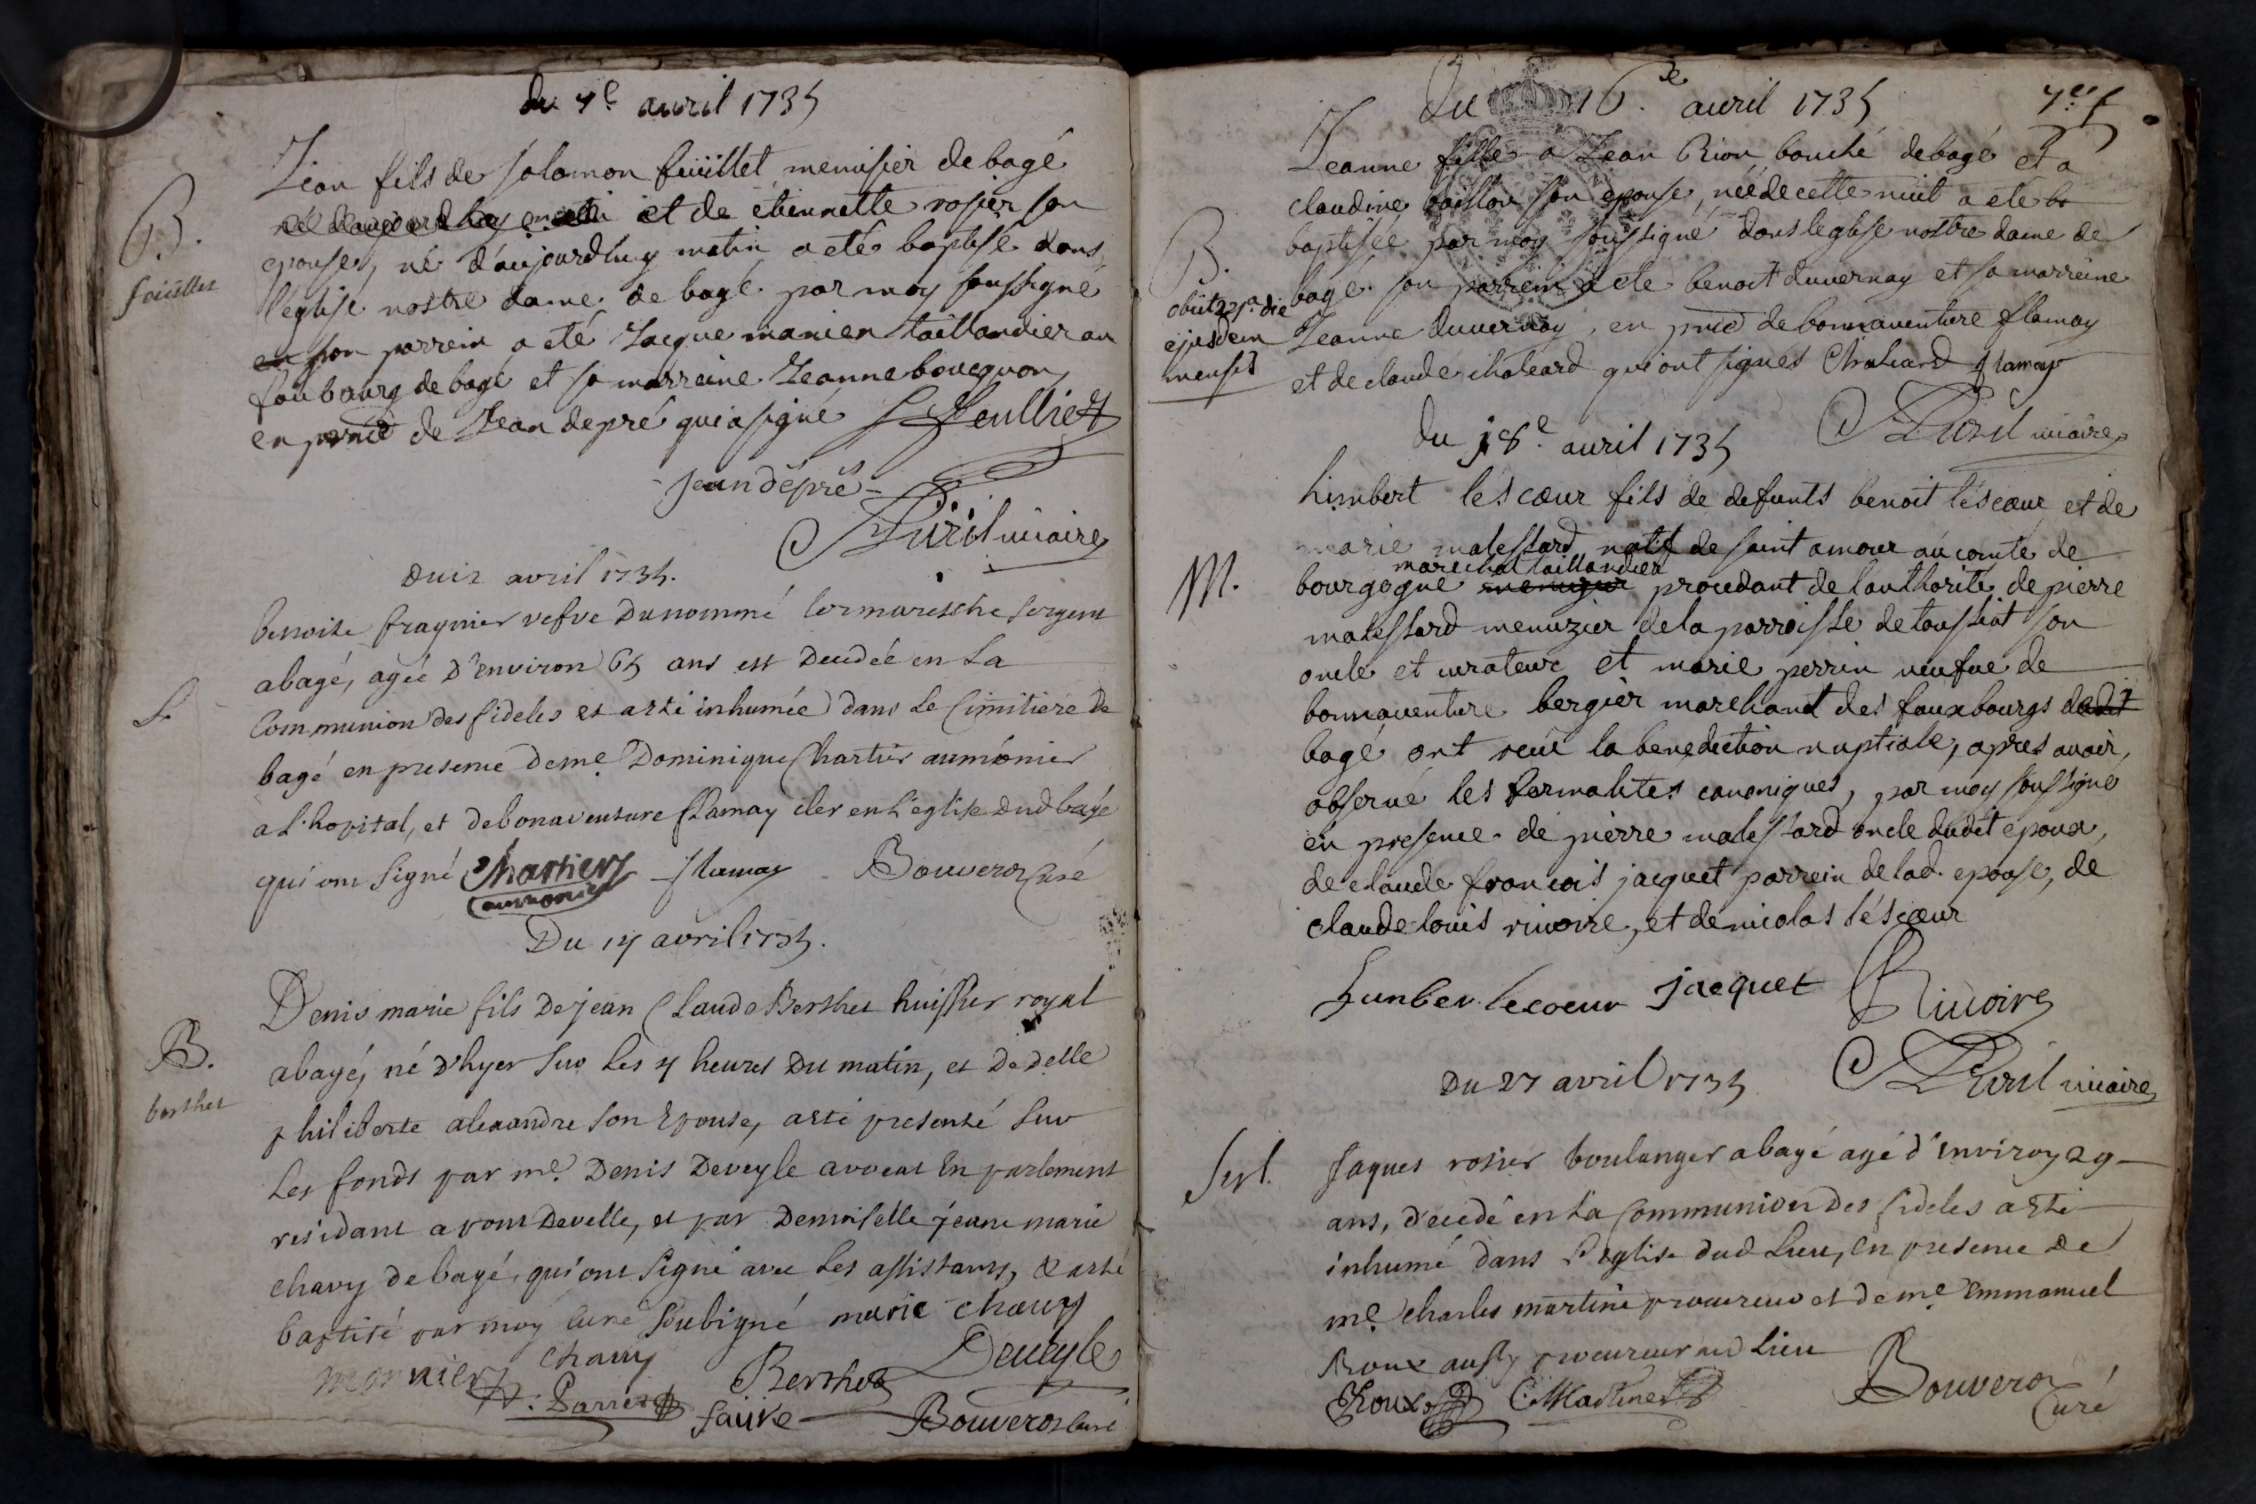 du 7e avril 1735
B.
feüillet
Jean fils de salomon feüillet menusier de bagé
né daujourdhuy matin et de étiennette rosier son
epouse, né d'aujourdhuy matin a eté baptisé dans
l'eglise nostre dame de bagé par moy soussigné
en son parrein a eté Jacque manien taillandier au
faubourg de bagé et sa marreine Jeanne boucquon
en prnce de Jean depré qui a signé Feulliet
jean depré
Puvil vicaire
du 12 avril 1735.
S.
benoite fraynier vefve du nommé lormaresche sergent
a bagé, agée d'environ 65 ans est decedée en la
Communion des fideles et a eté inhumée dans le Cimitiere de
bagé en presence de me. Dominique Chartier aumônier
a l'hopital, et de bonaventure flamay cler en l'eglise dud bagé
qui ont signé Chartier flamay Bouveros curé
aumonier
Du 14 avril 1735.
B.
berthet
Denis marie fils de jean Claude Berthet huissier royal
a bagé, né d'hyer sur les 4 heures du matin, et de delle
philiberte alexandre son epouse, a eté presenté sur
les fonds par me. Denis Deveyle avocat en parlement
residant a pont develle, et par Demoiselle jeanne marie
chavy de bagé, qui ont signé avec les assistants, & a eté
baptisé par moy curé soubsigné marie chavy
monnier chavy Berthet Deveyle
sauve Bouveros curé
7e f
du 16.e avril 1735
B.
obiit 27a die
ejusdem
mensis
Jeanne fille a Jean Rion bouché de bagé et a
claudine baillon son epouse, née de cette nuit a eté ba
baptisée par moy soussigné dans leglise nostre dame de
bagé. son parrein a eté benoit duvernay et sa marreine
Jeanne duvernay, en prnce de bonnaventure flamay
et de claude chaleard qui ont signés Chaleard flamay
Puvil vicaire
du 18e avril 1735
M.
himbert léscœur fils de defunts benoit léscœur et de
marie malessard natif de saint amour au comté de
marechal taillandier
bourgogne menuzier procedant de l'authorité de pierre
malessard menuzier de la parroisse de toussiat son
oncle et curateur et marie perrin veufve de
bonnaventure bergier marchand des fauxbourgs dudit
bagé ont recüe la benediction nuptiale, apres avoir
observé les formalites canoniques, par moy soussigné
en presence de pierre malessard oncle dudit epoux,
de claude françois jacquet parrein de lad. epouse, de
claude louis rivoire, et de nicolas léscœur
humber lecoeur jacquet Rivoire
Puvil vicaire
Du 27 avril 1735
Sepl.
Jaques rosier boulanger a bagé agé d'environ 29
ans, decedé en la Communion des fideles a eté
inhumé dans l'eglise dud lieu, en presence de
me. charles martine procureur et de me. emmanuel
Roux aussy procureur aud lieu
Roux CMartine Bouveros
Curé